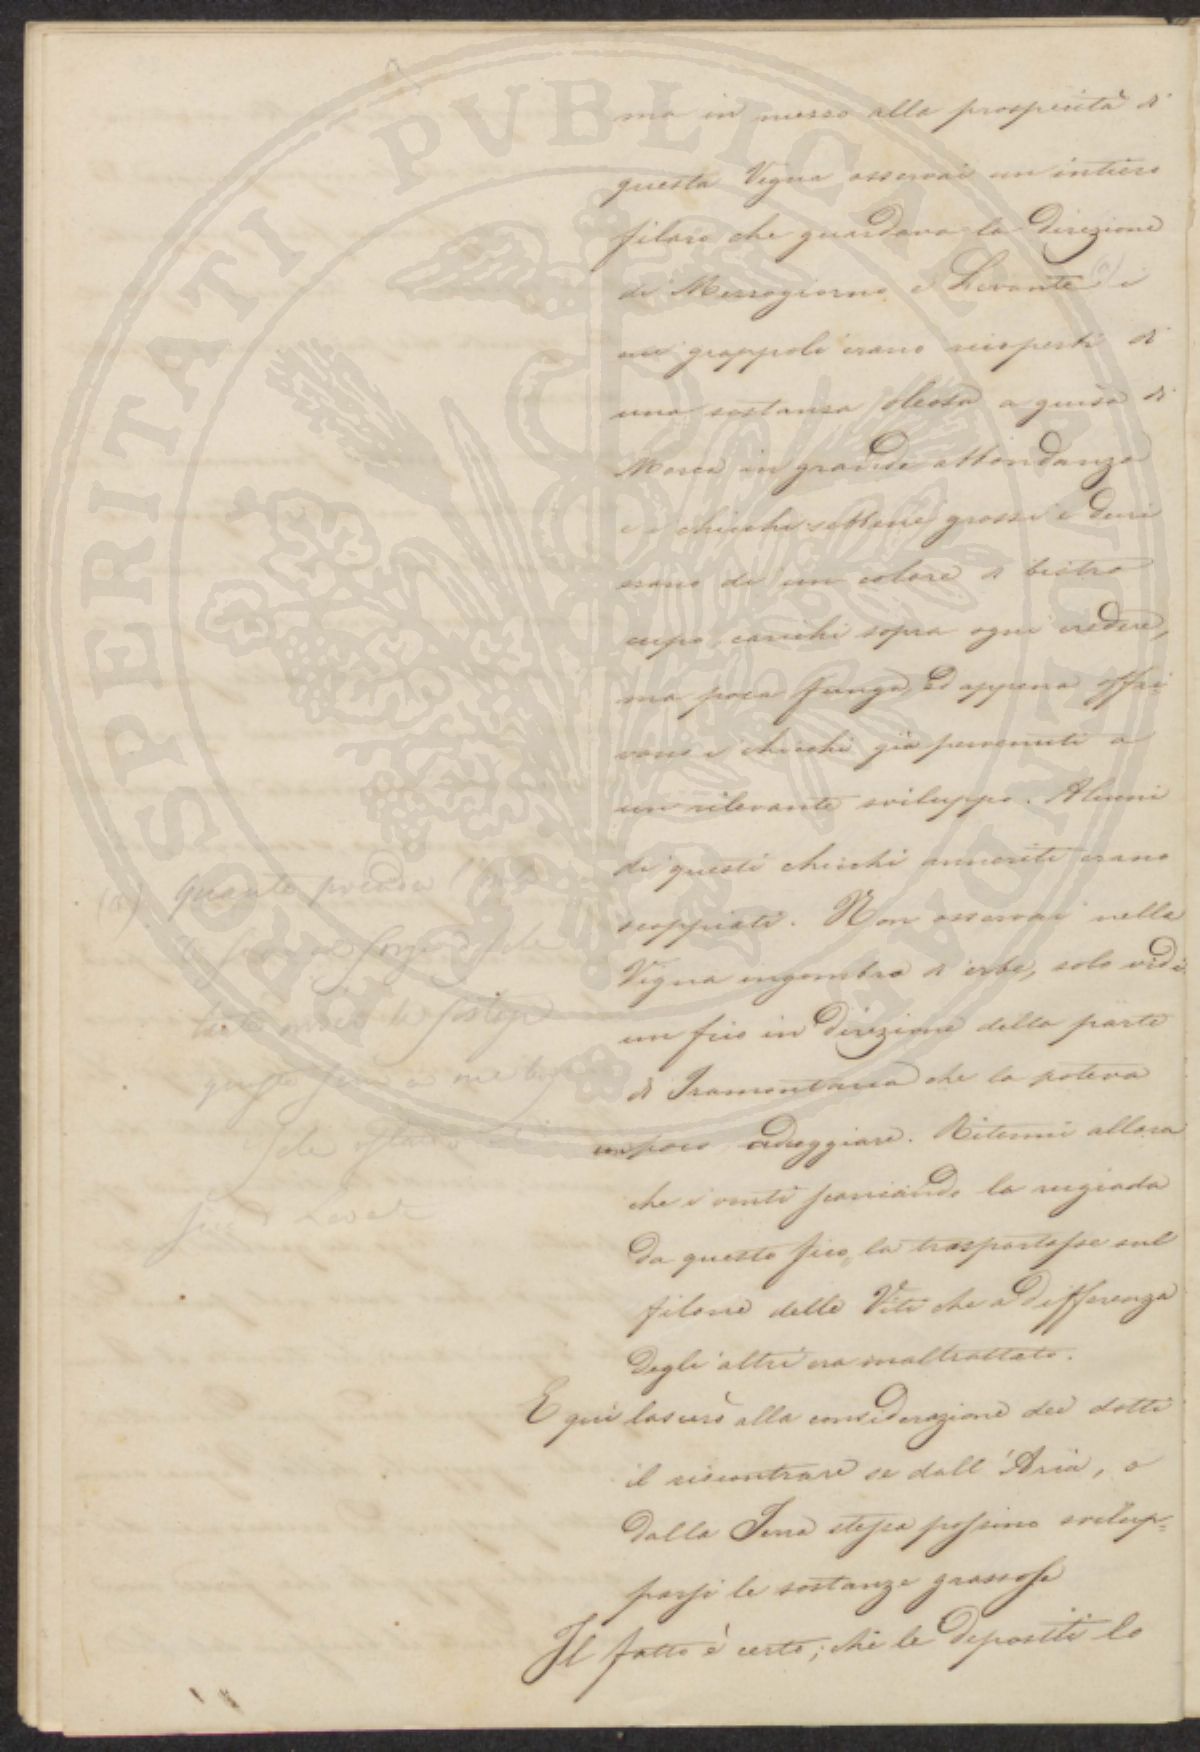 ma in mezzo alla prosperità di
questa Vigna osservai un intiero
filare che guardava la Direzione
di Mezzogiorno e Levante (a) i
cui grappoli erano ricoperti di
una sostanza oleosa a guisa di
in grande abbondanza
e i chicchi sebbene grossi e duri
erano di un colore di bistro
cupo, carichi sopra ogni credere,
ma poca funga, ed appena offri-
vano i chicchi già pervenuti a
un rilevante sviluppo. Alcuni
di questi chicchi anneriti erano
scoppiati. Non osservai nella
Vigna ingombro di erbe, solo vidi
un fico in Direzione della parte
di Tramontana che la poteva
un poco aduggiare. Ritenni allora
che i venti scansando la rugiada
da questo fico, la trasportasse sul
filare delle Viti che a Differenza
Degli altri era maltrattato.
E quì lascerò alla considerazione dei dotti
il riscontrare se dall'Aria, o
Dalla Terra stessa possino svilup-
parsi le sostanze grassose
Il fatto è certo; che le Depositi lo
(a)
PROSPERITATI PVBLICAE AVGENDAE